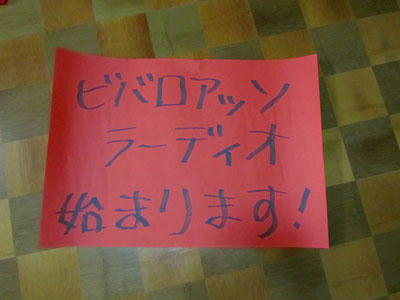 ビバロアッソ
ラーディオ
始まります!